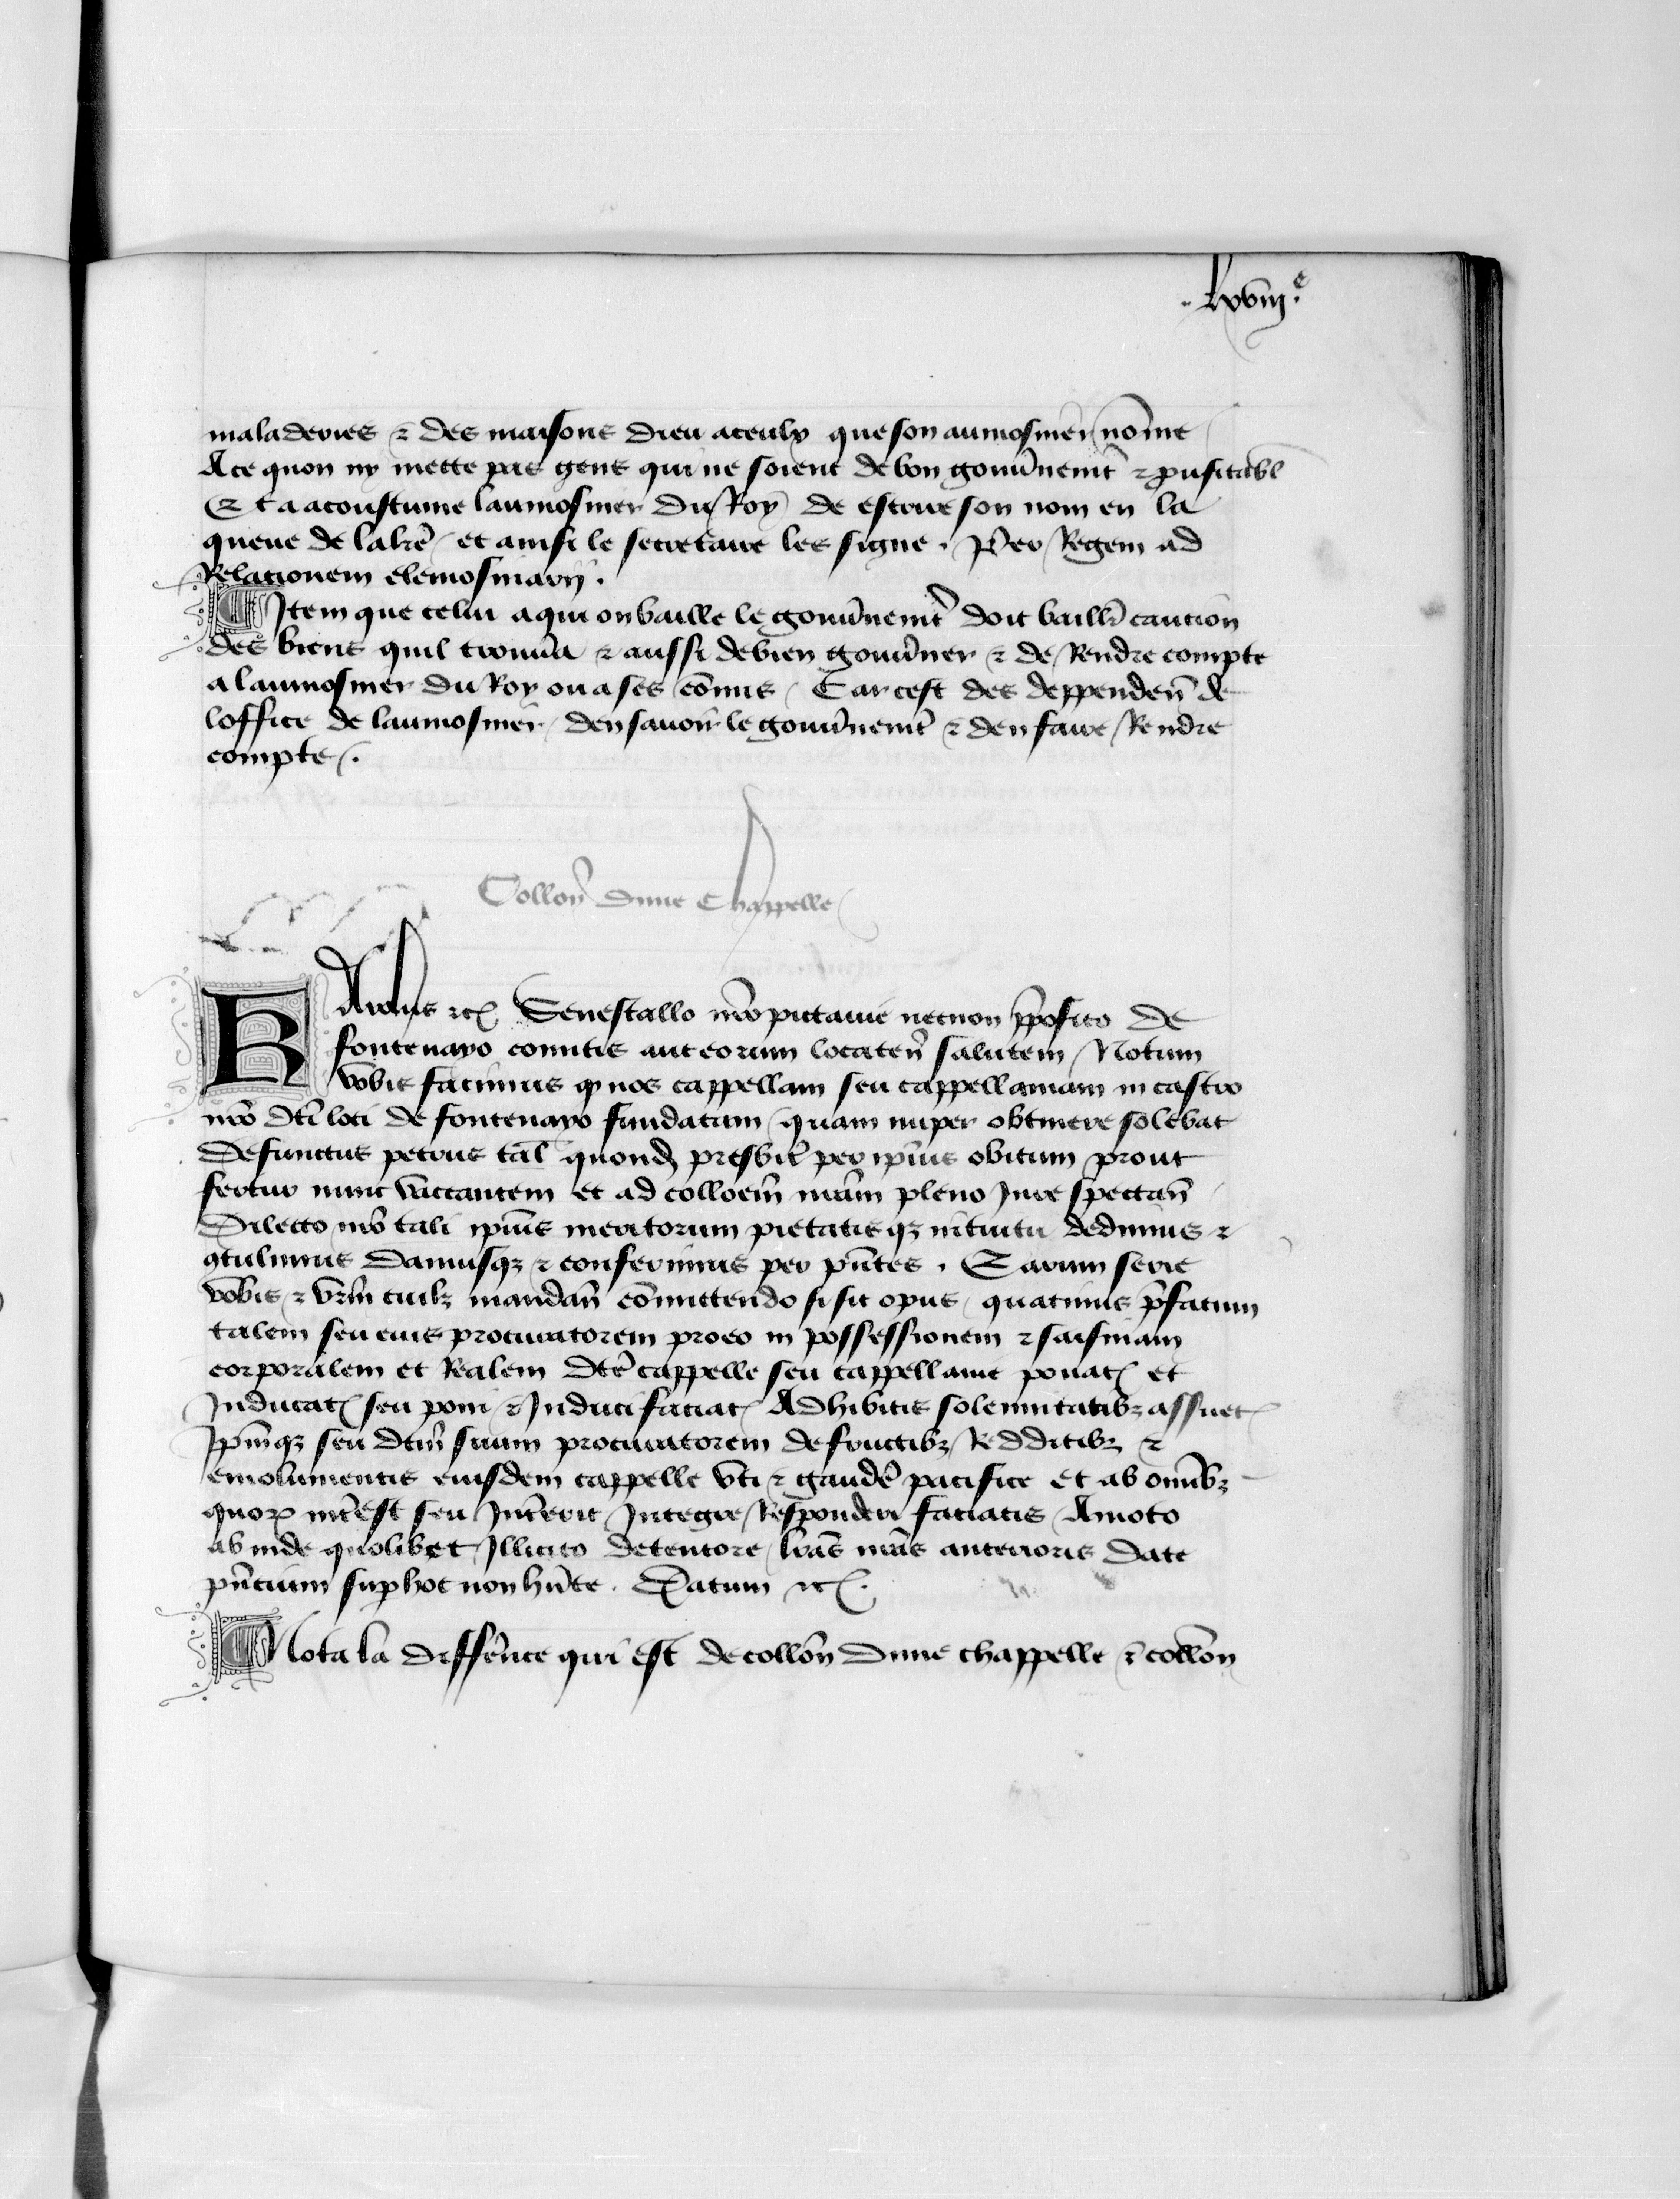 .lxviij.e
maladeries ⁊ des maisons dieu a ceulx que son aumosnier nōme
A ce quon ny mette pas gens qui ne soient de bon gouūnemt̄ ⁊ ꝓufitabl
Et a acoustume laumosnier du Roy de escrire son nom en la
queue de la lr̄e et ainsi le secretaire les signe. Per Regem ad
Relationem elemosinarij.
Item que celui a qui on baille le gouūnemt̄ doit baillr̄ caution
des biens quil trouūa ⁊ aussi de bien gouūner ⁊ de Rendre compte
a laumosnier du Roy ou a ses cōmis / Car cest des deppenden̄ de
loffice de laumosnier / den sauoir le gouūnemt̄ ⁊ den faire Rendre
compte /.
Collon̄ dune Chappelle
Karolus ⁊c̄ Senescallo nrō pictauie necnon p̄posito de
fontenayo comitis aut eorum locaten̄ salutem / Notum
vobis facimus ꝙ nos cappellam seu cappellaniam in castro
nrō dc̄i loci de fontenayo fundatam / quam nuper obtinere solebat
Defunctus petrus tal̄ quondā presbit̄ per ip̄ius obitum prout
fertur nunc vaccantem et ad collōem nrām pleno Jure spectan̄
Dilecto nrō tali ip̄ius meritorum pietatisqꝫ intuitu dedimus ⁊
ꝯtulimus Damusqꝫ ⁊ conferimus per pn̄tes. Earum serie
vobis ⁊ vrm̄ cuilꝫ mandan̄ cōmittendo si sit opus / quatinus p̄fatum
talem seu eius procuratorem pro eo in possessionem ⁊ saisinam
corporalem et Realem dc̄e cappelle seu cappellanie ponat̄ et
Inducat̄ seu poni ⁊ Induci faciat̄ Adhibitis solennitatibꝫ assuet̄
Ip̄mqꝫ seu dc̄m suum procuratorem de fructibꝫ Redditibꝫ ⁊
emolumentis eiusdem cappelle vti ⁊ gaudē pacifice et ab omībꝫ
quorꝫ int̄est seu Int̄erit Integre Responderi faciatis Amoto
ab inde quolibet Illicito detentore / lrīs nrīs anterioris date
pn̄cium sup hoc non hn̄te. Datum ⁊c̄.
Nota la diffēnce qui est de collon̄ dune chappelle ⁊ collon̄